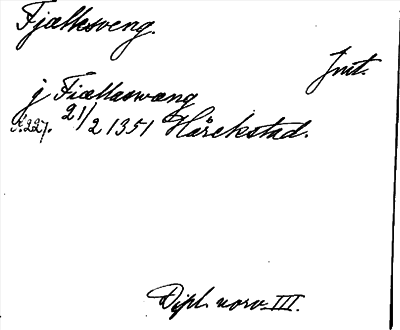 Fjælkesveng.
Jnt.
j Fiællaswæng
S. 227. 21/2 1351 Hårekstad.
Dipl. norv. III.